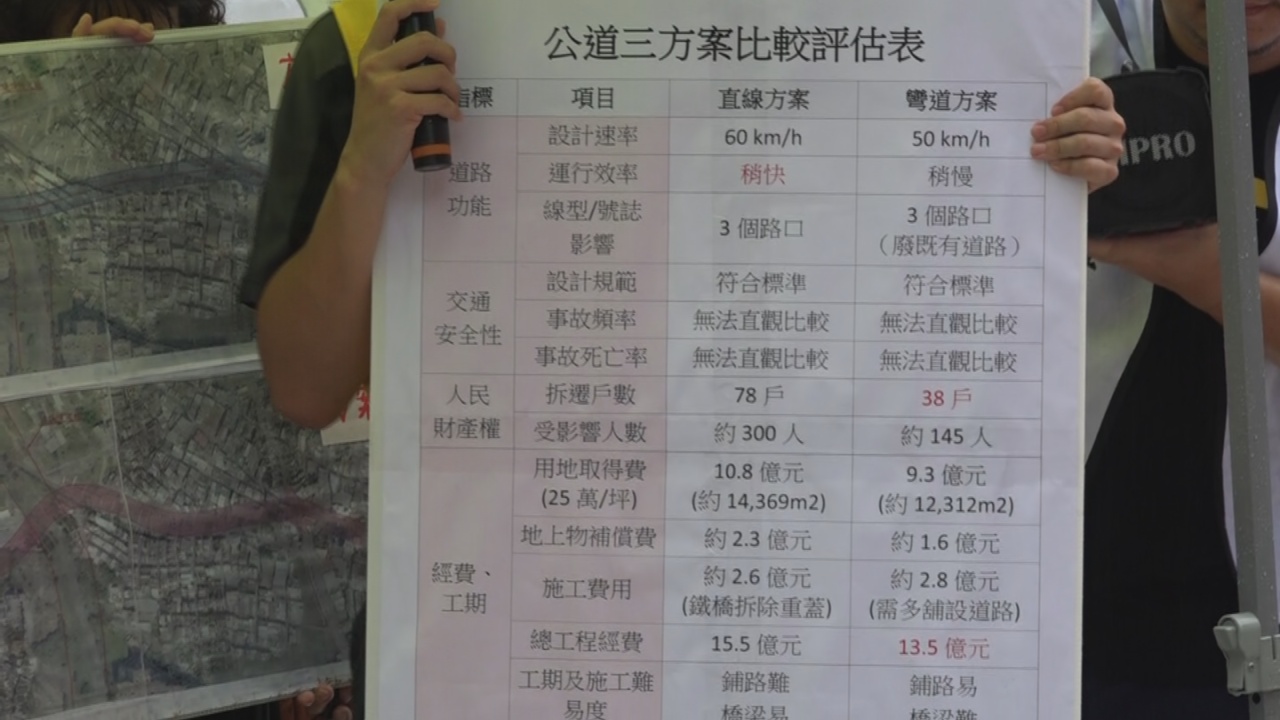 公道三方案比較評估表
指標 項目 直線方案 彎道方案
道路功能 設計速率 60 km/h 50 km/h
運行效率 稍快 稍慢
線型/號誌影響 3 個路口 3 個路口
（廢既有道路）
交通安全性 設計規範 符合標準 符合標準
事故頻率 無法直觀比較 無法直觀比較
事故死亡率 無法直觀比較 無法直觀比較
人民財產權 拆遷戶數 78 戶 38 戶
受影響人數 約 300 人 約 145 人
經費、工期 用地取得費 10.8 億元 9.3 億元
(25 萬/坪) (約 14,369m2) (約 12,312m2)
地上物補償費 約 2.3 億元 約 1.6 億元
施工費用 約 2.6 億元 約 2.8 億元
(鐵橋拆除重蓋) (需多舖設道路)
總工程經費 15.5 億元 13.5 億元
工期及施工難易度 鋪路難 鋪路易
橋梁易 橋梁難
PRO